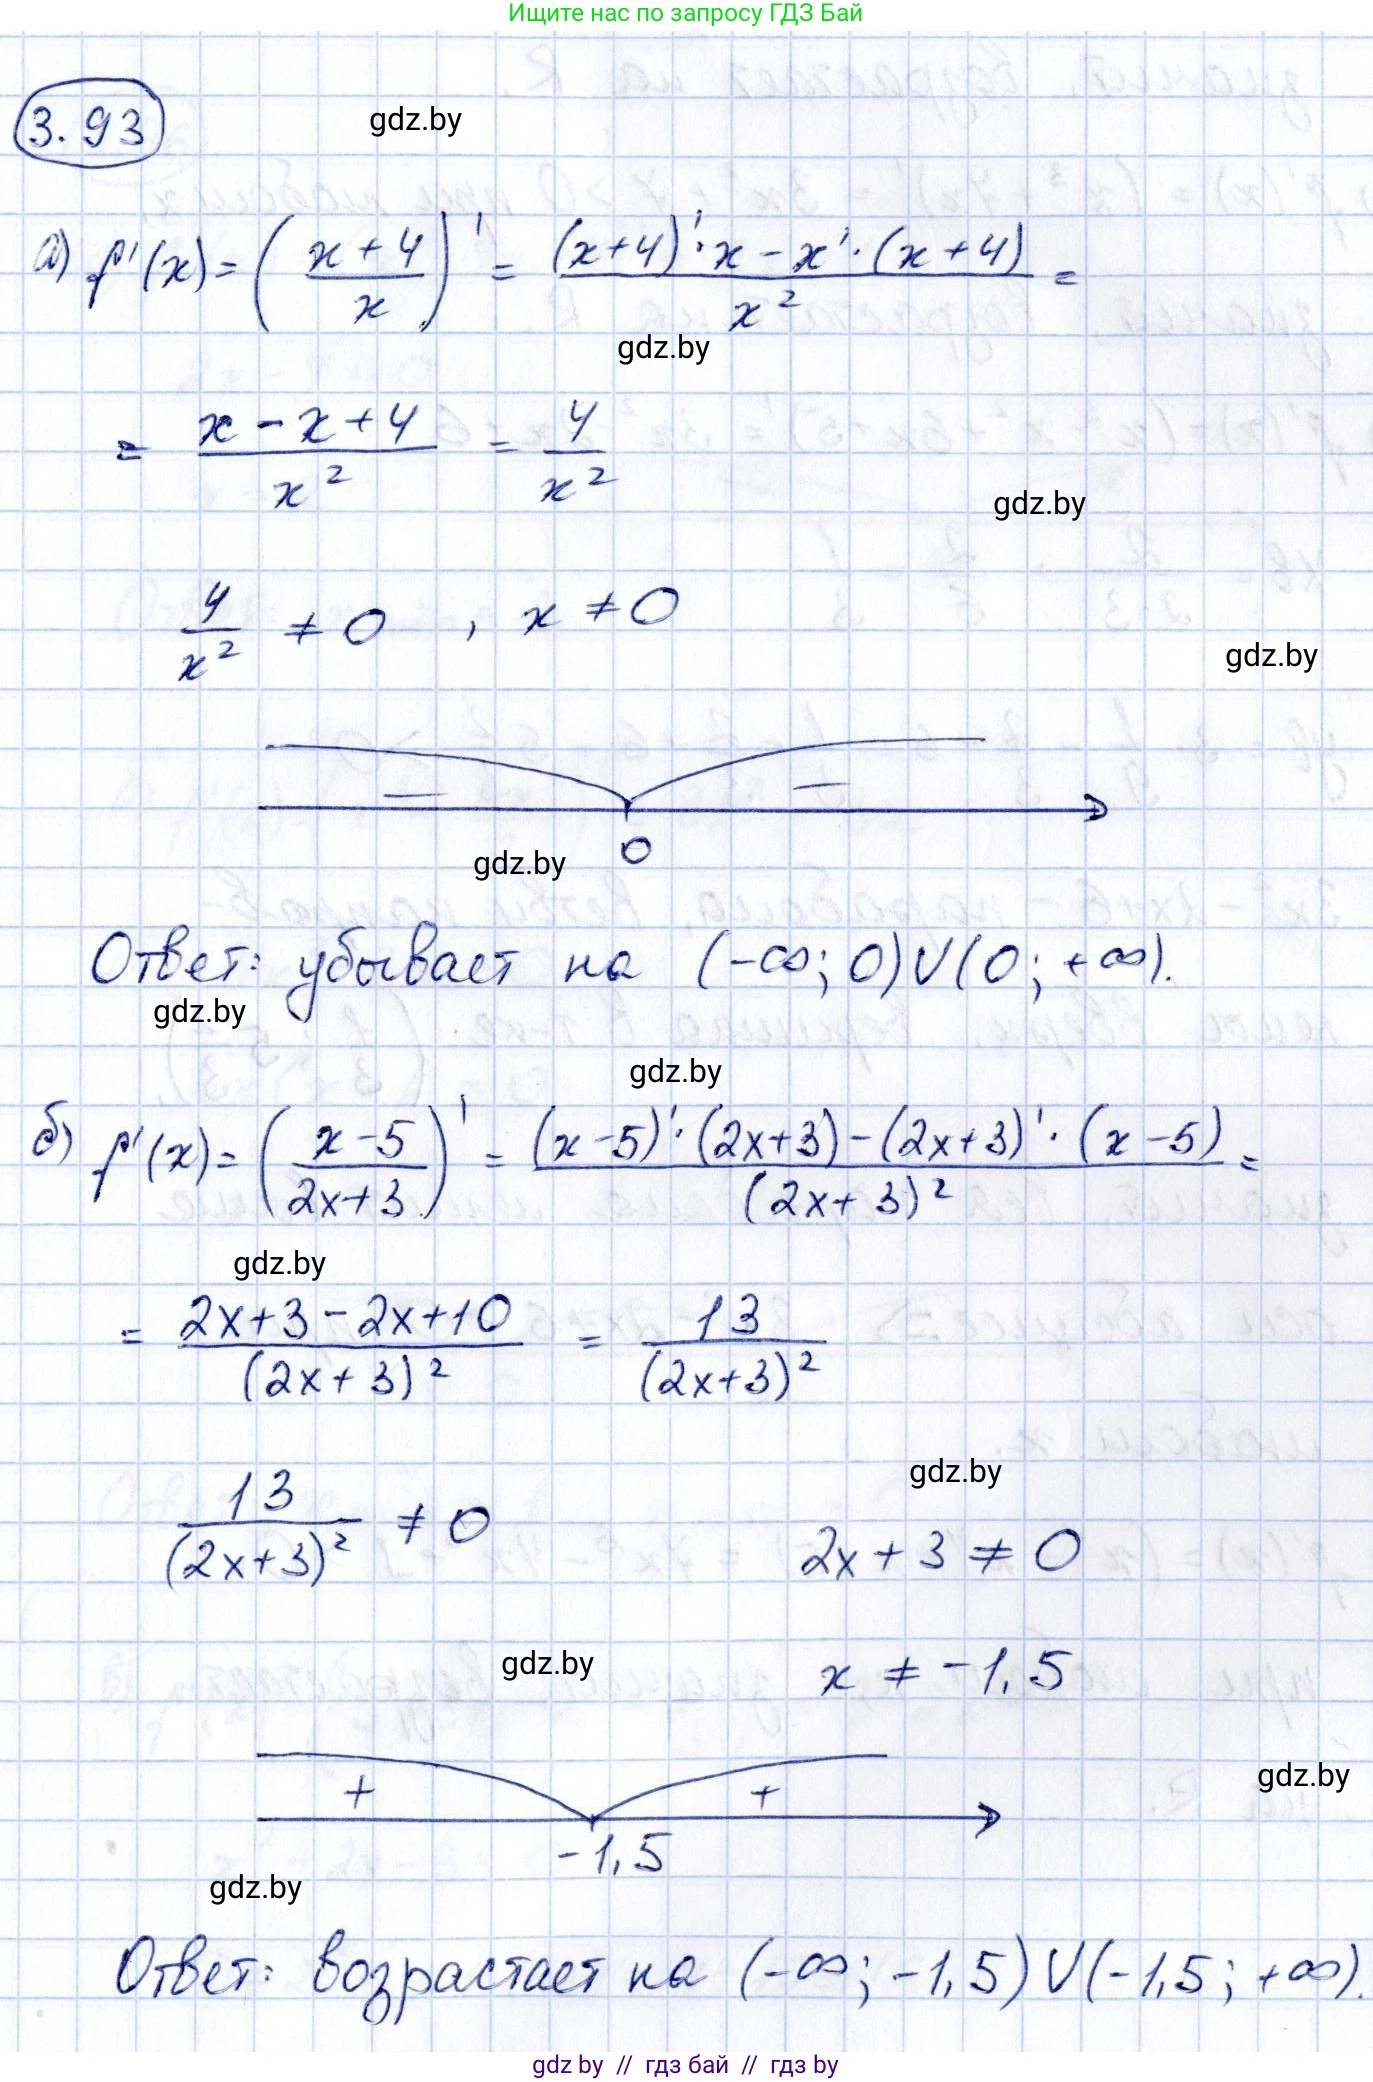 Ищите нас по запросу ГДЗ Бай
3.93
gdz.by
а) f'(x) = ((x + 4)/x)' = ((x+4)'·x − x'·(x+4))/x² =
gdz.by
= (x − x + 4)/x² = 4/x²
gdz.by
4/x² ≠ 0 , x ≠ 0
gdz.by
− −
0
gdz.by
Ответ: убывает на (−∞; 0) ∪ (0; +∞).
gdz.by
gdz.by
б) f'(x) = ((x − 5)/(2x+3))' = ((x − 5)'·(2x+3) − (2x+3)'·(x − 5))/(2x+3)² =
gdz.by
= (2x+3 − 2x+10)/(2x+3)² = 13/(2x+3)²
gdz.by
13/(2x+3)² ≠ 0 2x + 3 ≠ 0
gdz.by
x ≠ −1,5
gdz.by
+ +
−1,5
gdz.by
Ответ: возрастает на (−∞; −1,5) ∪ (−1,5; +∞).
gdz by // гдз бай // гдз by